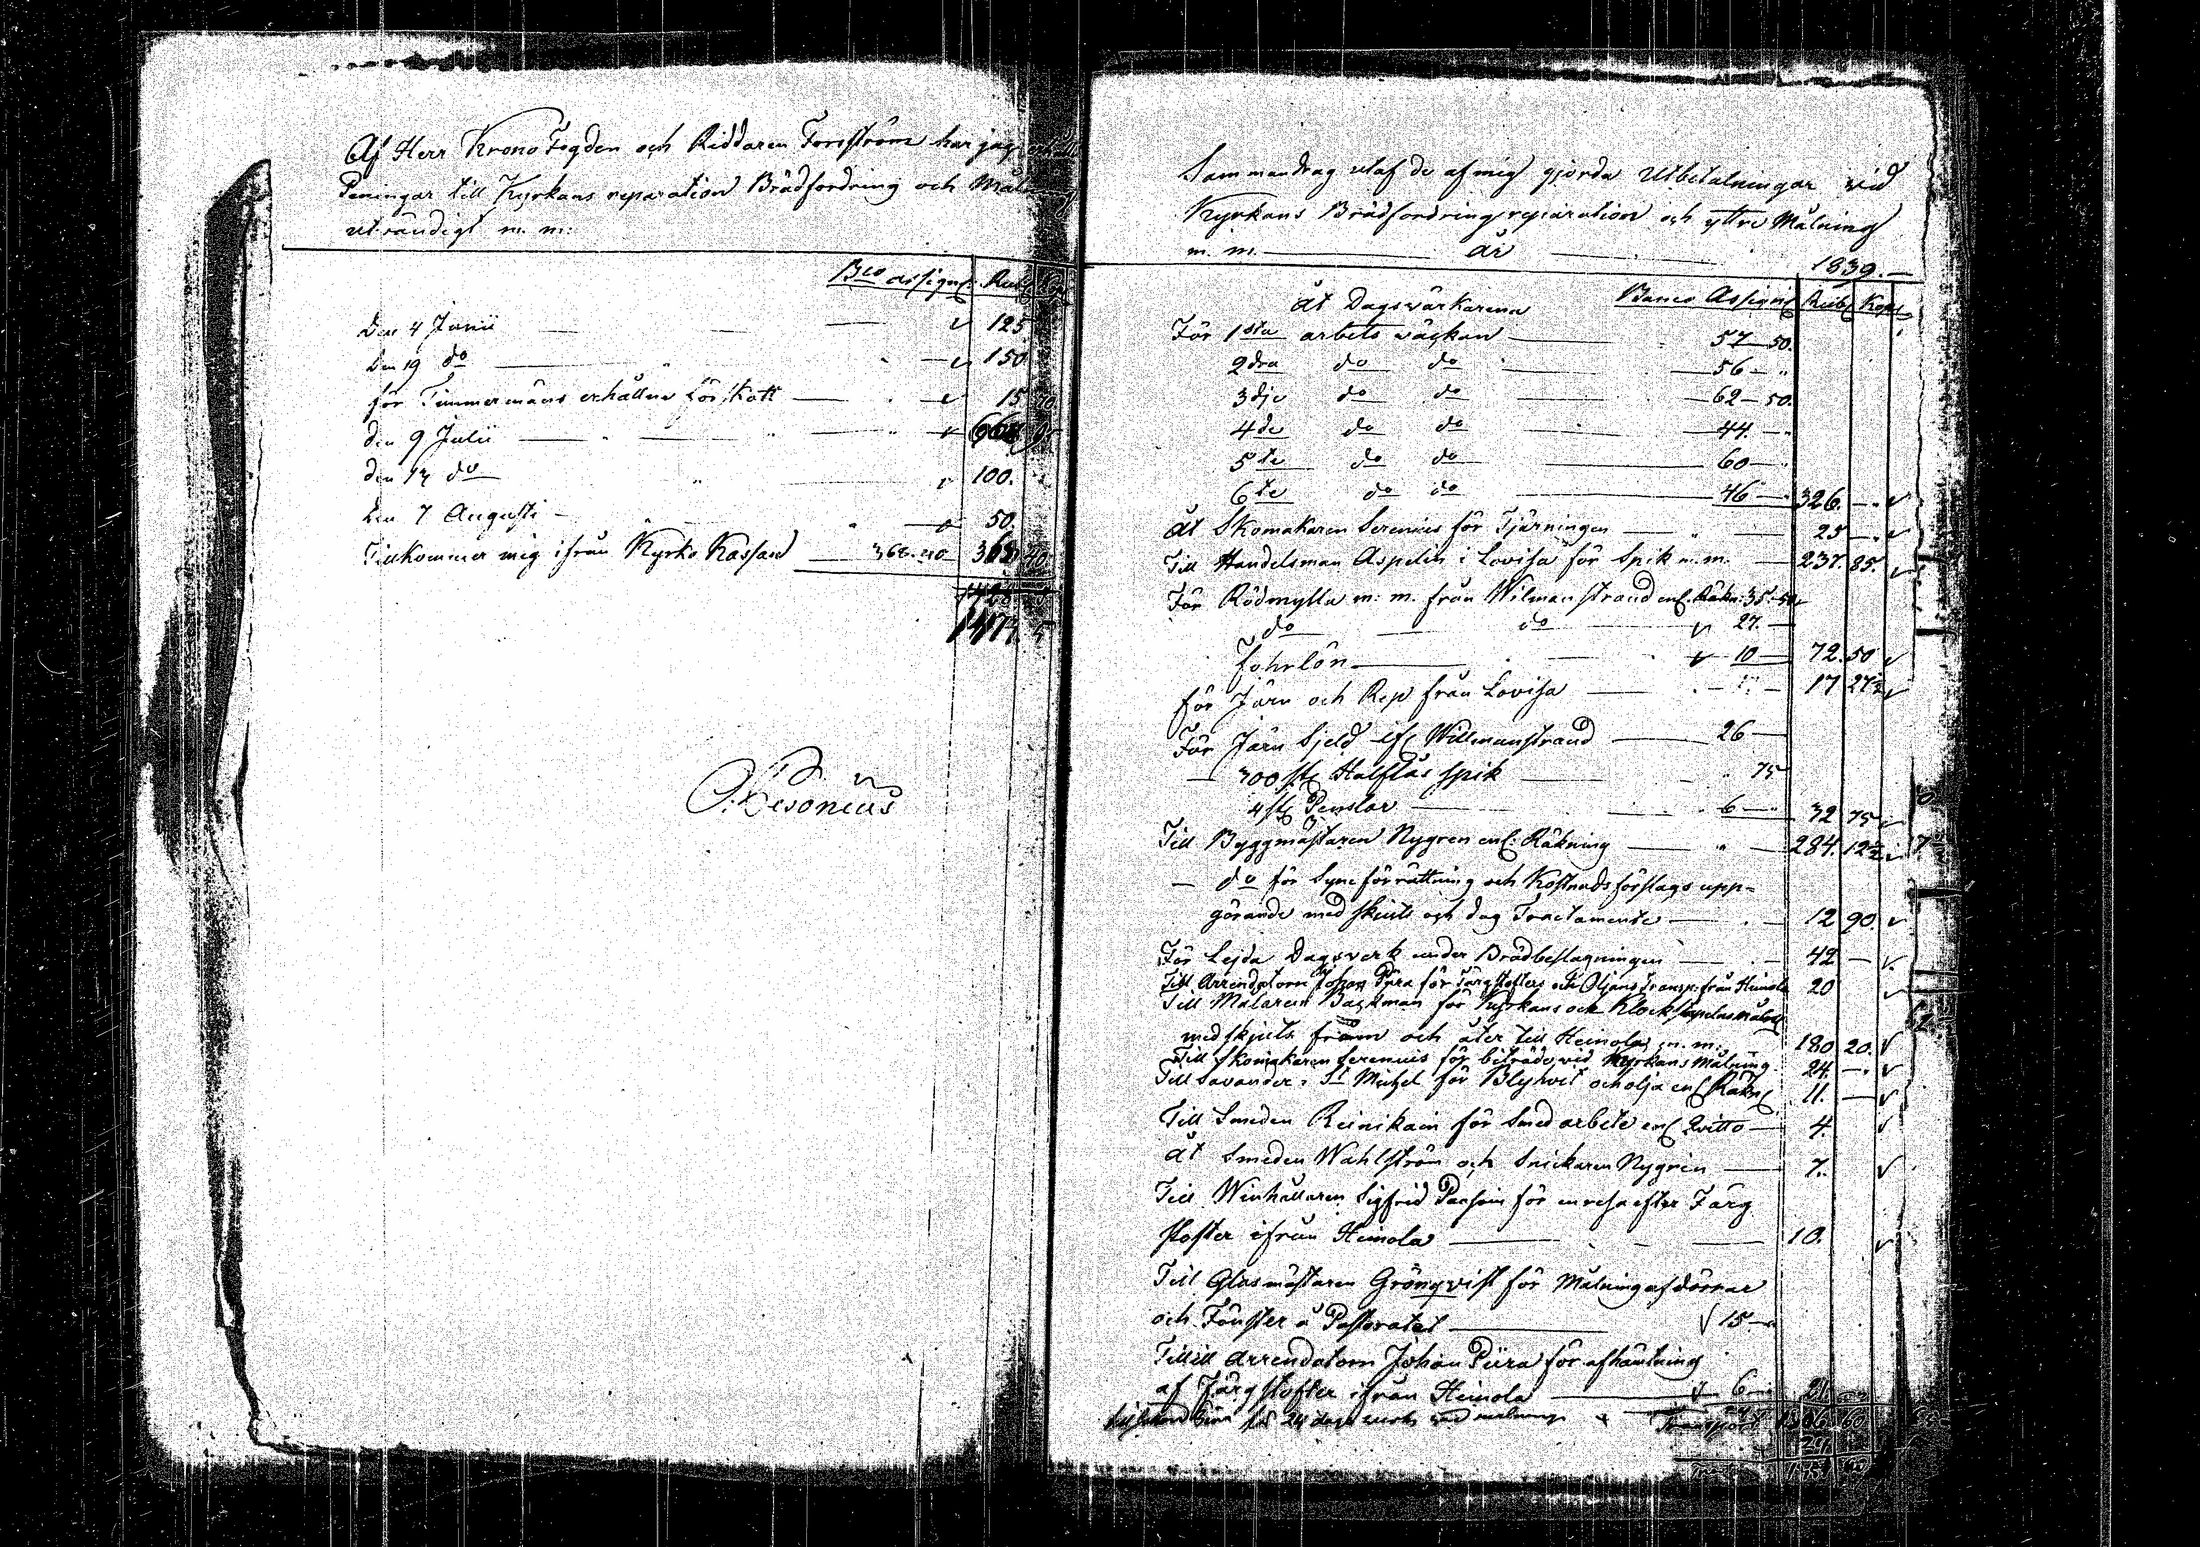 Af Herr Krono Fogden och Riddaren Forsström har jag
Peningar till Kyrkans reparation Brädfordring och
utvändigt m. m:
Bco assign: Rub Kop
Den 4 Junii 125
Den 19 do 150
för Timmermäns erhållne 15 70.
den 9 Julii
den 13 do 100.
den 7 Augusti 50.
Tillkommer mig ifrån Kyrko Kassan 368. 40 368. 40
Sammandrag utaf de af mig gjorda Utbetalningar vid
Kyrkans Brädfordring reparation och yttre Målning
m. m. år 1839.
Åt Dagsvärkarena Banco Assign Rub Kop
För 1sta arbets väckan 57 50.
2dra do do 56 "
3dje do do 62 50.
4de do do 44. "
5te do do 60 "
6te do do 46 326.
Åt Skomakaren Serenius för Tjärningen 25
Till Handelsman Aspelin i Lovisa för Spik m. m. 237. 85.
För Rödmylla m: m. från Wilmanstrand enl. Räkn: 35. 50
do do 27.
Fohrlön 10 72. 50
för Järn och Rep från Lovisa 17 27½
För Järn Willmanstrand 26
300 st Halflås spik " 75
4 st Penslar 6 32 75
Till Byggmästaren Nygren enl: Räkning 284. 12½
do för Syneförrättning och Kostnadsförslags upp=
görande med skjuts och dag Tractamente 12 90.
För Lejda Dagsverk under Brädbeslagningen 42
Till Arrendatorn Johan Piira för Färgstofters och Oljans Transp: från Heinola 20
Till Målaren Backman för Kyrkans och Klockstapelns
med skjuts fram och åter till Heinola m. m: 180 20.
Till Skomakaren Serenius för biträde vid Kyrkans Målning 24.
Till Savander i St Michel för Blyhvit och olja enl Räkn 11.
Till Smeden Reinikain för Smed arbete enl Qvitto 4.
Åt Smeden Wahlström och Snickaren Nygrén 7.
Till Sigfrid för en resa efter Färg
stofter ifrån Heinola 10.
Till Glasmästaren Grönqvist för Målning af dörrar
och Fönster å Pastoratet 15
Tillill Arrendatorn Johan Piira för afhämtning
af Färgstofter ifrån Heinola 6 21
för 24 dags verk vid målning Transport